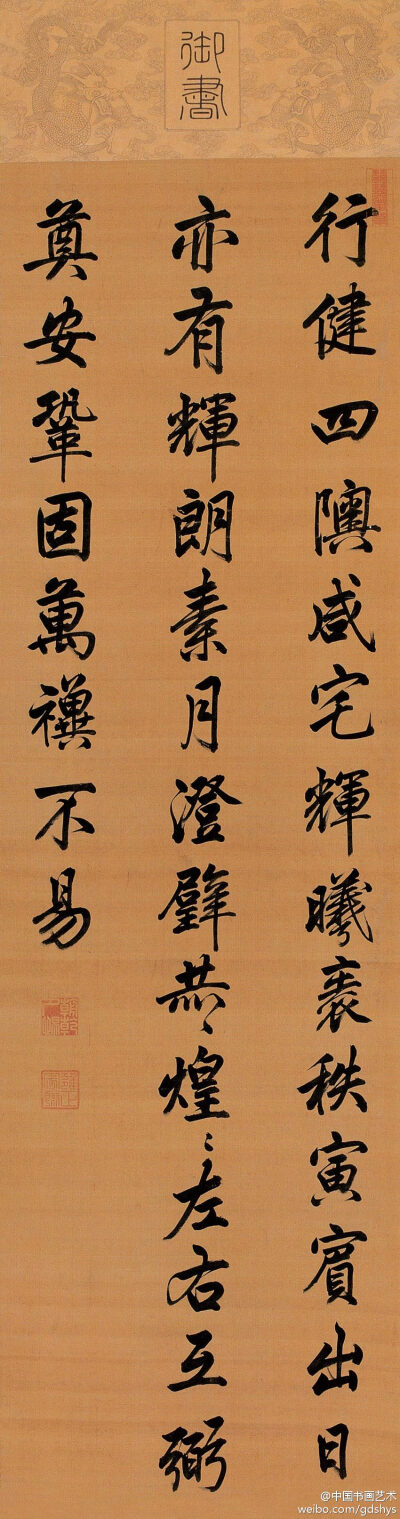 御書
行健四隩咸宅輝曦秩寅賓出日
亦有輝朗素月澄璧煌〻左右互弼
奠安鞏固萬禩不易
乾乾夕惕
雍正宸翰
@中国书画艺术
weibo.com/gdshys